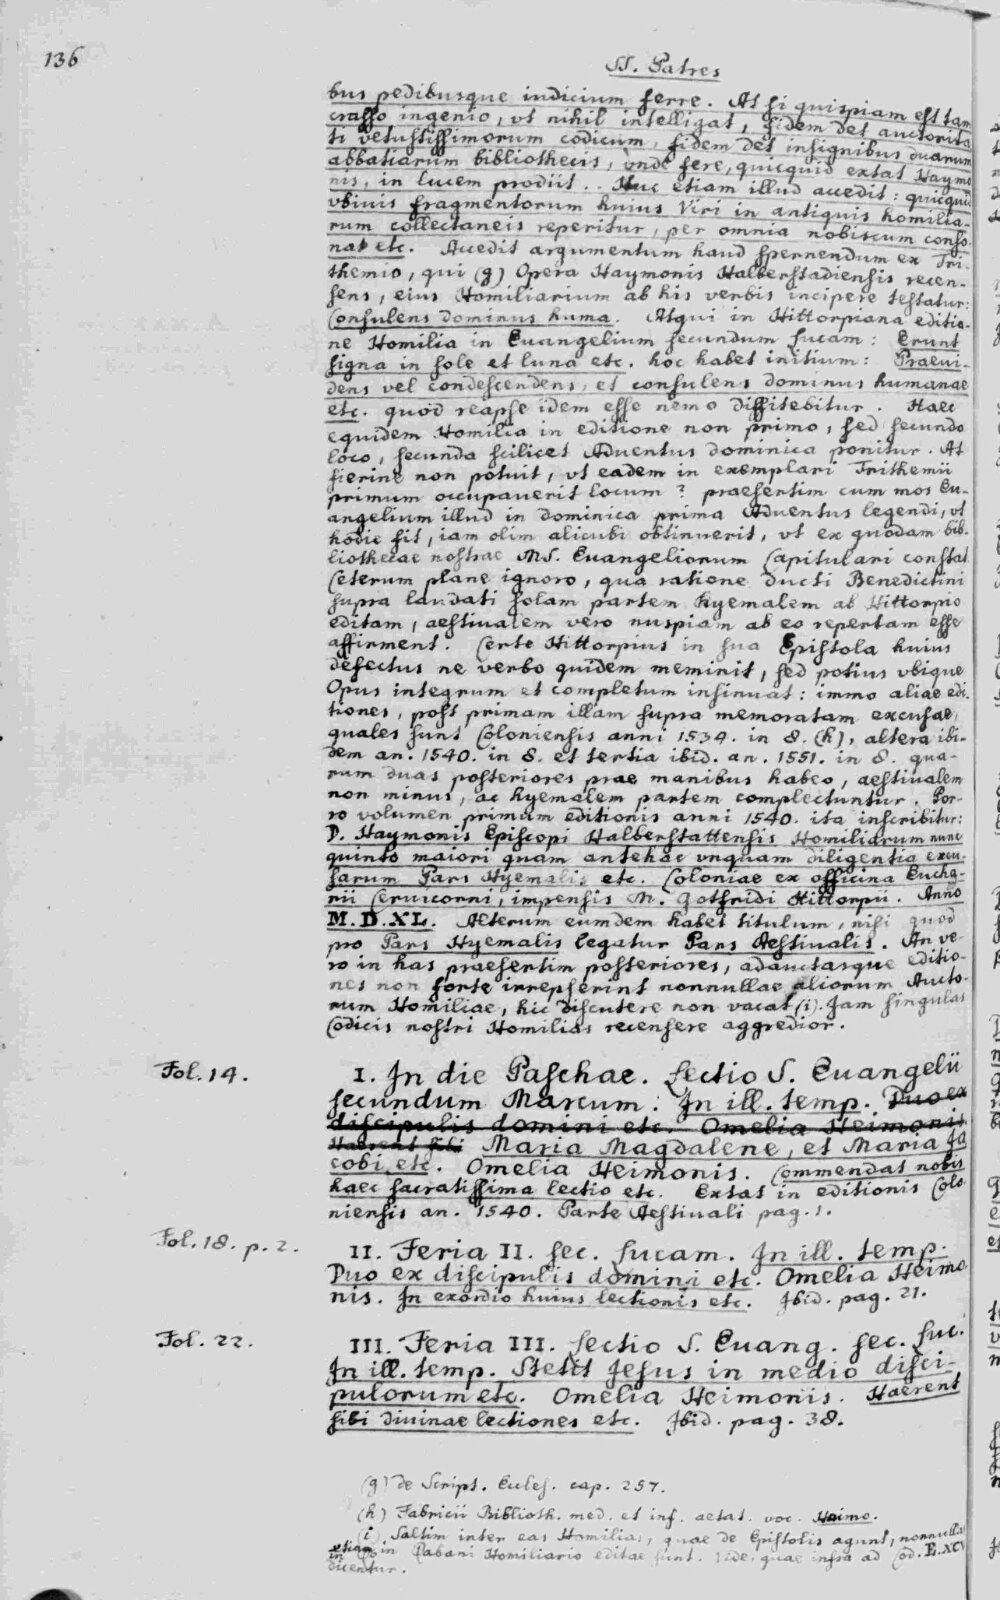 136
SS. Patres
bus pedibusque iudicium ferre. At si quispiam est tam
crasso ingenio, vt nihil intelligat, fidem det auctorita
ti vetustissimorum codicum, fidem det insignibus duarum
abbatiarum bibliothecis, vnde fere, quicquid extat Haymo
nis, in lucem prodiit.. Huc etiam illud accedit: quicquid
vbiuis fragmentorum huius Viri in antiquis homilia-
rum collectaneis reperitur, per omnia nobiscum conso
nat etc. Accedit argumentum haud spernendum ex Tri-
themio, qui (g) Opera Haymonis Halberstadiensis recen-
sens, eius Homiliarium ab his verbis incipere testatur:
Consulens dominus huma. Atqui in Hittorpiana editio-
ne Homilia in Euangelium secundum Lucam: Erunt
signa in sole et luna etc. hoc habet initium: Praeui-
dens vel condescendens, et consulens dominus humanae
etc. quod reapse idem esse nemo diffitebitur. Haec
equidem Homilia in editione non primo, sed secundo
loco, secunda scilicet Aduentus dominica ponitur. At
fierine non potuit, vt eadem in exemplari Trithemii
primum occupauerit locum? praesertim cum mos Eu-
angelium illud in dominica prima Aduentus legendi, vt
hodie fit, iam olim alicubi obtinuerit, vt ex quodam bib-
liothecae nostrae MS. Euangeliorum Capitulari constat
Ceterum plane ignoro, qua ratione ducti Benedictini
supra laudati solam partem hyemalem ab Hittorpio
editam, aestiualem vero nuspiam ab eo repertam esse
affirment. Certe Hittorpius in sua Epistola huius
defectus ne verbo quidem meminit, sed potius vbique
Opus integrum et completum insinuat: immo aliae edi-
tiones, post primam illam supra memoratam excusae,
quales sunt Coloniensis anni 1534. in 8. (h), altera ibi-
dem an. 1540. in 8. et tertia ibid. an. 1551. in 8. qua-
rum duas posteriores prae manibus habeo, aestiualem
non minus, ac hyemalem partem complectuntur. Por-
ro volumen primum editionis anni 1540. ita inscribitur:
D. Haymonis Episcopi Halberstattensis Homiliarum nunc
quinto maiori quam antehac vnquam diligentia excu-
sarum Pars Hyemalis etc. Coloniae ex officina Eucha-
rii Ceruicorni, impensis M. Gothfridi Hittorpii. Anno
M.D.XL. Alterum eumdem habet titulum, nisi quod
pro Pars Hyemalis legatur Pars Aestiualis. An ve-
ro in has praesertim posteriores, adauctasque editio-
nes non forte irrepserint nonnullae aliorum Aucto-
rum Homiliae, hic discutere non vacat (i). Jam singulas
Codicis nostri Homilias recensere aggredior.
Fol. 14.
I. In die Paschae. Lectio S. Euangelii
secundum Marcum: In ill. temp. Duo ex
discipulis domini etc. Omelia Heimonis
Haerent sibi Maria Magdalene, et Maria Ja
cobi etc. Omelia Heimonis. Commendat nobis
haec sacratissima lectio etc. Extat in editionis Colo
niensis an. 1540. Parte Aestiuali pag. 1.
Fol. 18. p. 2.
II. Feria II. sec. Lucam. In ill. temp.
Duo ex discipulis domini etc. Omelia Heimo
nis. In exordio huius lectionis etc. Ibid. pag. 21.
Fol. 22.
III. Feria III. Lectio S. Euang. sec. Luc.
In ill. temp. Stetit Jesus in medio disci-
pulorum etc. Omelia Heimonis. Haerent
sibi diuinae lectiones etc. Ibid. pag. 38.
(g) de Script. Eccles. cap. 257.
(h) Fabricii Biblioth. med. et inf. aetat. voc. Haimo.
(i) Saltim inter eas Homilias, quae de Epistolis agunt, nonnullae
etiam in Rabani Homiliario editae sunt. Vide, quae infra ad Cod. E. XCV
dicentur.